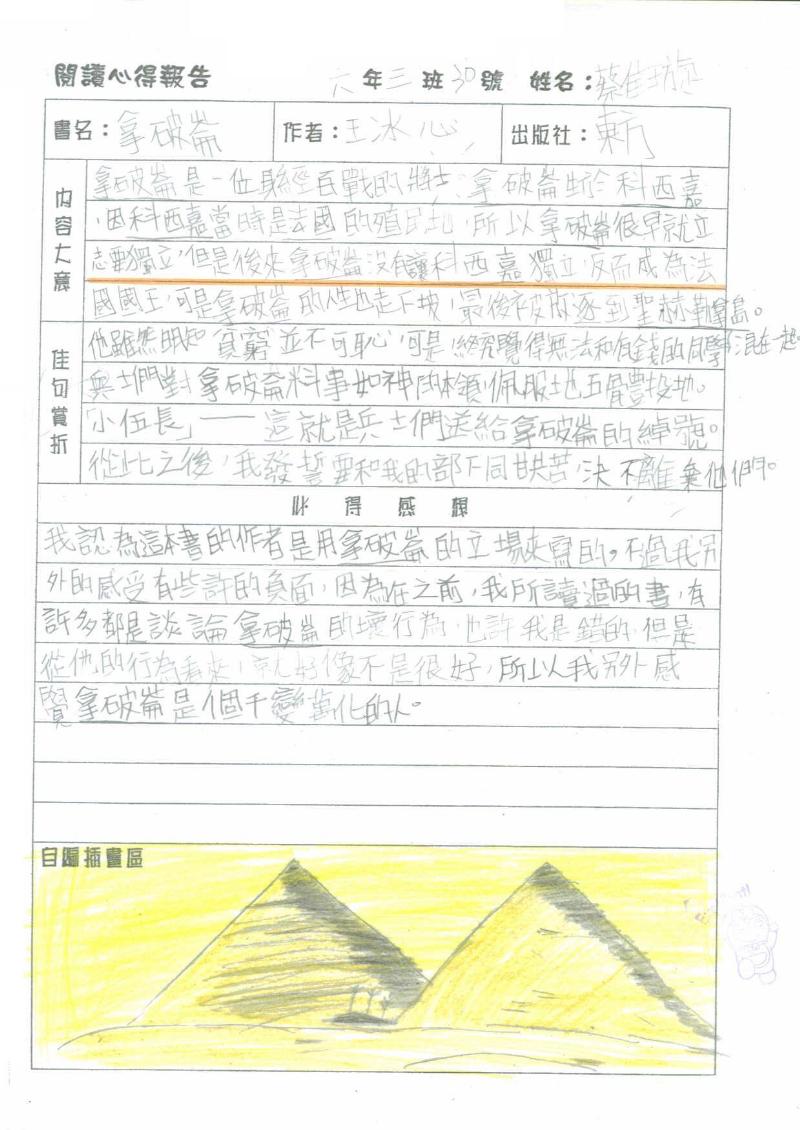 閱讀心得報告 六年三班30號 姓名：蔡佳璇
書名：拿破崙 作者：王冰心 出版社：東方
內容大意
拿破崙是一位身經百戰的將士，拿破崙生於科西嘉
，因科西嘉當時是法國的殖民地，所以拿破崙很早就立
志要獨立，但是後來拿破崙沒有讓科西嘉獨立反而成為法
國國王，可是拿破崙的人生也走下坡，最後被放逐到聖赫勒拿島。
佳句賞折
他雖然明知貧窮並不可恥，可是終究覺得無法和有錢的同學混在一起。
兵士們對拿破崙料事如神的本領，佩服地五體投地。
「小伍長」——這就是兵士們送給拿破崙的綽號。
從此之後，我發誓要和我的部下同甘共苦，決不離棄他們。
心得感想
我認為這本書的作者是用拿破崙的立場來寫的，不過我另
外的感受有些許的負面，因為在之前，我所讀過的書，有
許多都是談論拿破崙的壞行為，也許我是錯的，但是
從他的行為看來，就好像不是很好，所以我另外感
覺拿破崙是個千變萬化的人。
自編插畫區